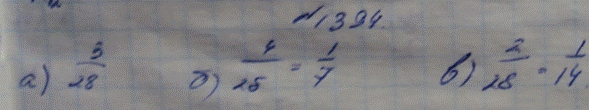 №1394.
а) 3/28 б) 4/28 = 1/7 в) 2/28 = 1/14.